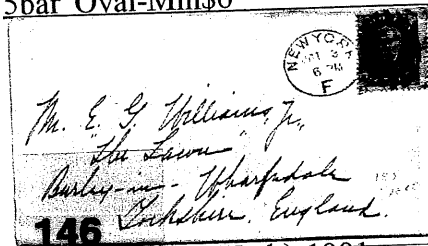 5bar Oval-Min$6
NEW YORK
6 PM
F
Mr. E. G. Williams, Jr.,
"The Lawn"
Burley-in-Wharfedale
Yorkshire, England.
146